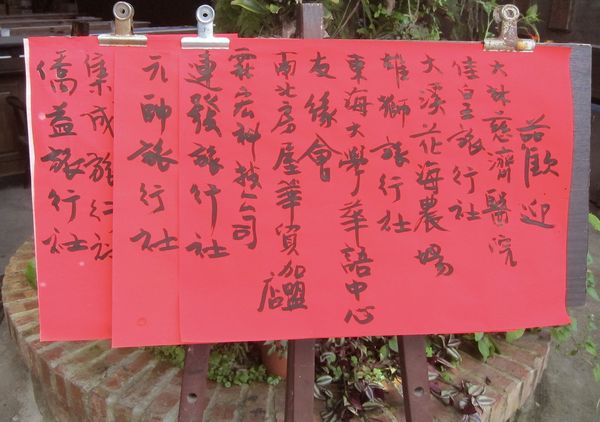 歡迎
大林慈濟醫院
佳皇旅行社
大溪花海農場
雄獅旅行社
東海大學華語中心
友緣會
南北房屋華貿加盟店
霖宏科技公司
連發旅行社
元帥旅行社
集成旅行社
僑益旅行社